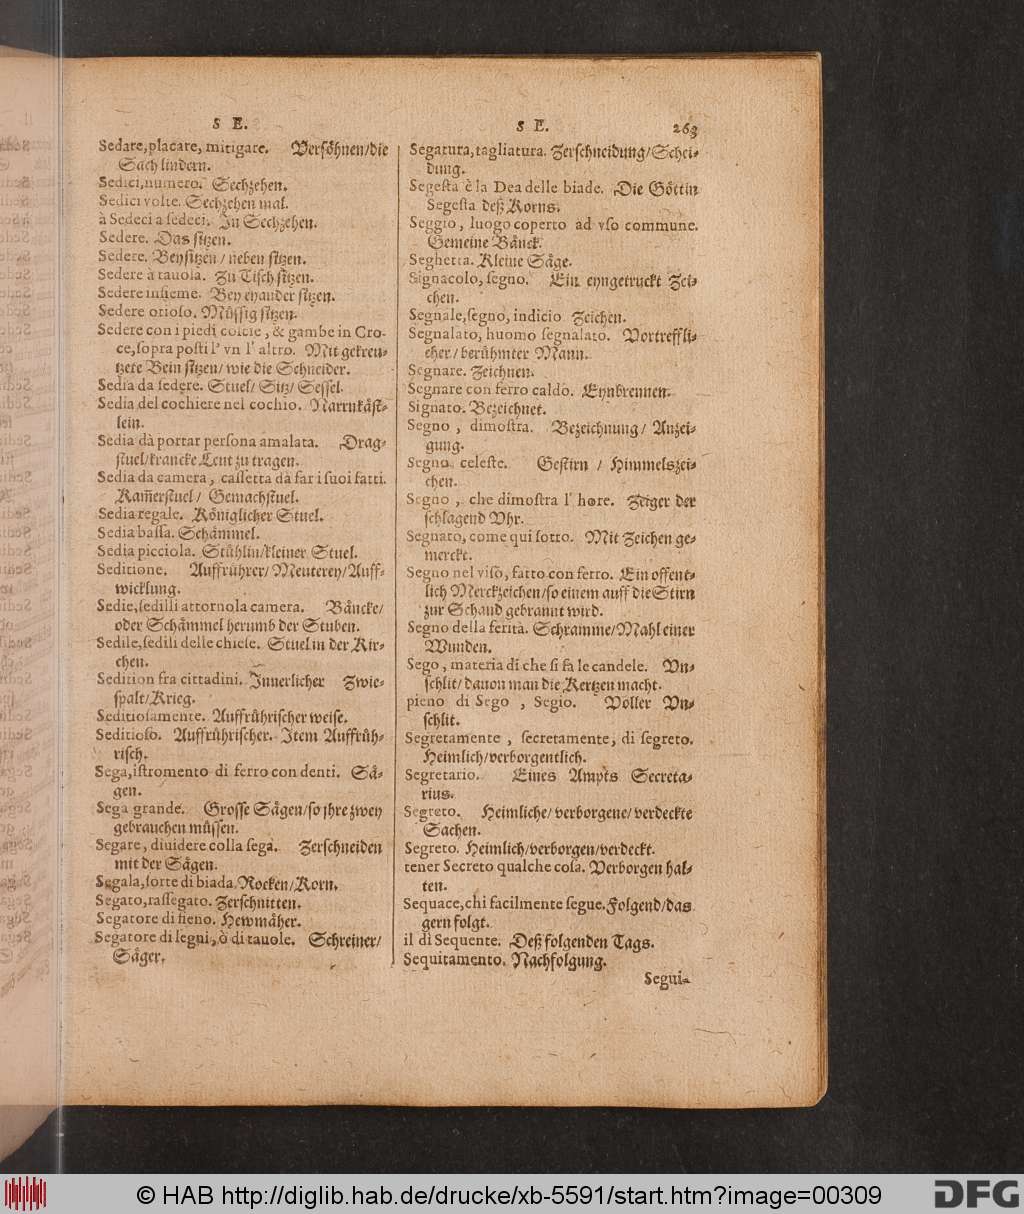 S E.
Sedare, placare, mitigare. Versöhnen/die
Sach lindern.
Sedici, numero. Sechzehen.
Sedici volte. Sechzehen mal.
à Sedeci a sedeci. In Sechzehen.
Sedere. Das sitzen.
Sedere. Beysitzen / neben sitzen.
Sedere à tauola. Zu Tisch sitzen.
Sedere insieme. Bey eynander sitzen.
Sedere otioso. Müssig sitzen.
Sedere con i piedi colcie, & gambe in Cro-
ce, sopra posti l' vn l' altro. Mit gekreu-
tzete Bein sitzen/ wie die Schneider.
Sedia da sedere. Stuel/ Sitz/ Sessel.
Sedia del cochiere nel cochio. Narrnkäst-
lein.
Sedia dà portar persona amalata. Drag-
stuel/krancke Leut zu tragen.
Sedia da camera, cassetta dà far i suoi fatti.
Kam̃erstuel/ Gemachstuel.
Sedia regale. Königlicher Stuel.
Sedia bassa. Schämmel.
Sedia picciola. Stühlin/kleiner Stuel.
Seditione. Auffrührer/ Meuterey/Auff-
wicklung.
Sedie, sedilli attorno la camera. Bäncke/
oder Schämmel herumb der Stuben.
Sedile, sedili delle chiese. Stuel in der Kir-
chen.
Sedition fra cittadini. Innerlicher Zwie-
spalt/Krieg.
Seditiosamente. Auffrührischer weise.
Seditioso. Auffrührischer. Item Auffrüh-
risch.
Sega, istromento di ferro con denti. Sä-
gen.
Sega grande. Grosse Sägen/so jhre zwey
gebrauchen müssen.
Segare, diuidere colla sega. Zerschneiden
mit der Sägen.
Segala, sorte di biada. Rocken/Korn.
Segato, rassegato. Zerschnitten.
Segatore di fieno. Hewmäher.
Segatore di legni, ò di tauole. Schreiner/
Säger.
S E. 263
Segatura, tagliatura. Zerschneidung/Schei-
dung.
Segesta è la Dea delle biade. Die Göttin
Segesta deß Korns.
Seggio, luogo coperto ad vso commune.
Gemeine Bänck.
Seghetta. Kleine Säge.
Signacolo, segno. Ein eyngetruckt Zei-
chen.
Segnale, segno, indicio Zeichen.
Segnalato, huomo segnalato. Vortreffli-
cher/ berühmter Mann.
Segnare. Zeichnen.
Segnare con ferro caldo. Eynbrennen.
Signato. Bezeichnet.
Segno, dimostra. Bezeichnung/ Anzei-
gung.
Segno celeste. Gestirn / Himmelszei-
chen.
Segno, che dimostra l' hore. Zeiger der
schlagend Vhr.
Segnato, come qui sotto. Mit Zeichen ge-
merckt.
Segno nel viso, fatto con ferro. Ein offent-
lich Merckzeichen/so einem auff die Stirn
zur Schand gebrannt wird.
Segno della ferità. Schramme/Mahl einer
Wunden.
Sego, materia di che si fa le candele. Vn-
schlit/ dauon man die Kertzen macht.
pieno di Sego, Segio. Voller Vn-
schlit.
Segretamente, secretamente, di segreto.
Heimlich/verborgentlich.
Segretario. Eines Ampts Secreta-
rius.
Segreto. Heimliche/ verborgene/ verdeckte
Sachen.
Segreto. Heimlich/verborgen/verdeckt.
tener Secreto qualche cosa. Verborgen hal-
ten.
Sequace, chi facilmente segue. Folgend/das
gern folgt.
il dì Sequente. Deß folgenden Tags.
Sequitamento. Nachfolgung.
Segui-
© HAB http://diglib.hab.de/drucke/xb-5591/start.htm?image=00309
DFG